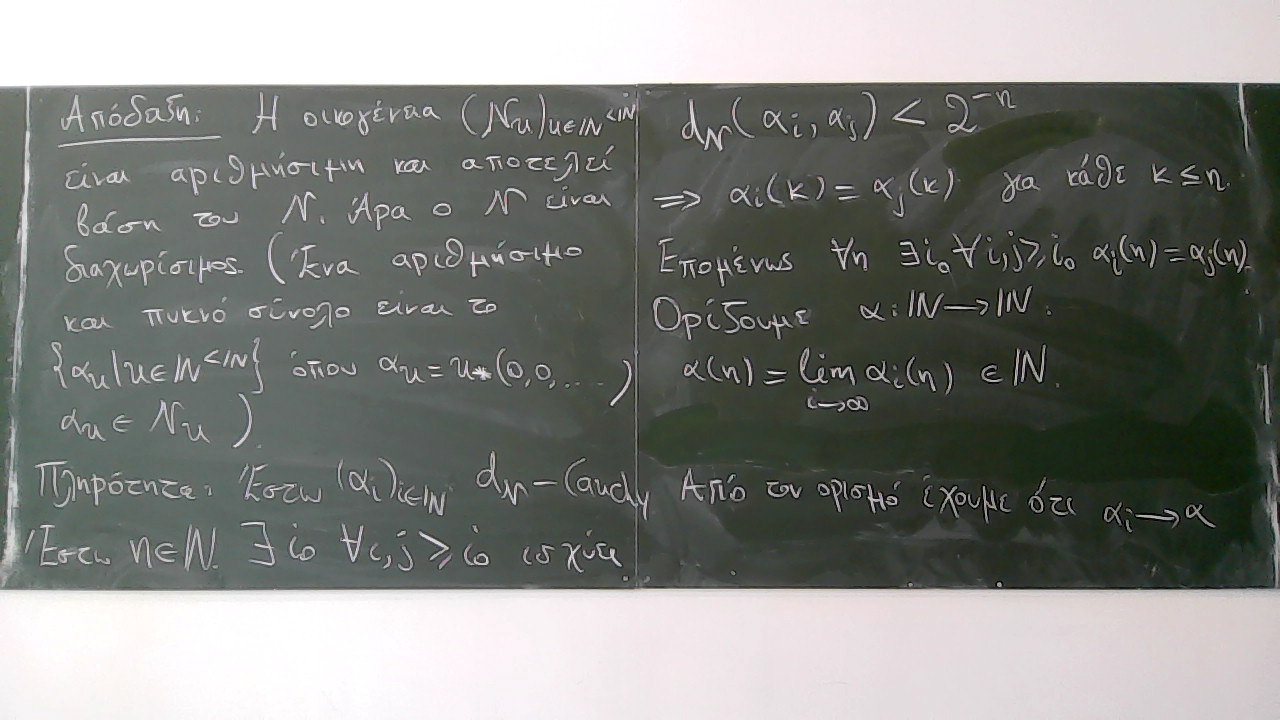 Απόδειξη: Η οικογένεια (N_u)_{u∈ℕ^{<ℕ}}
είναι αριθμήσιμη και αποτελεί
βάση του N. Άρα ο N είναι
διαχωρίσιμος. (Ένα αριθμήσιμο
και πυκνό σύνολο είναι το
{α_u | u∈ℕ^{<ℕ}} όπου α_u = u*(0,0,....)
α_u ∈ N_u ).
Πληρότητα: Έστω (α_i)_{i∈ℕ} d_N - Cauchy
Έστω n∈ℕ. ∃ i_0 ∀i,j ⩾ i_0 ισχύει
d_N(α_i, α_j) < 2^{-n}
⇒ α_i(k) = α_j(k) για κάθε k ≤ n.
Επομένως ∀n ∃i_0 ∀i,j ⩾ i_0 α_i(n) = α_j(n).
Ορίζουμε α: ℕ → ℕ.
α(n) = lim_{i→∞} α_i(n) ∈ ℕ.
Από τον ορισμό έχουμε ότι α_i → α